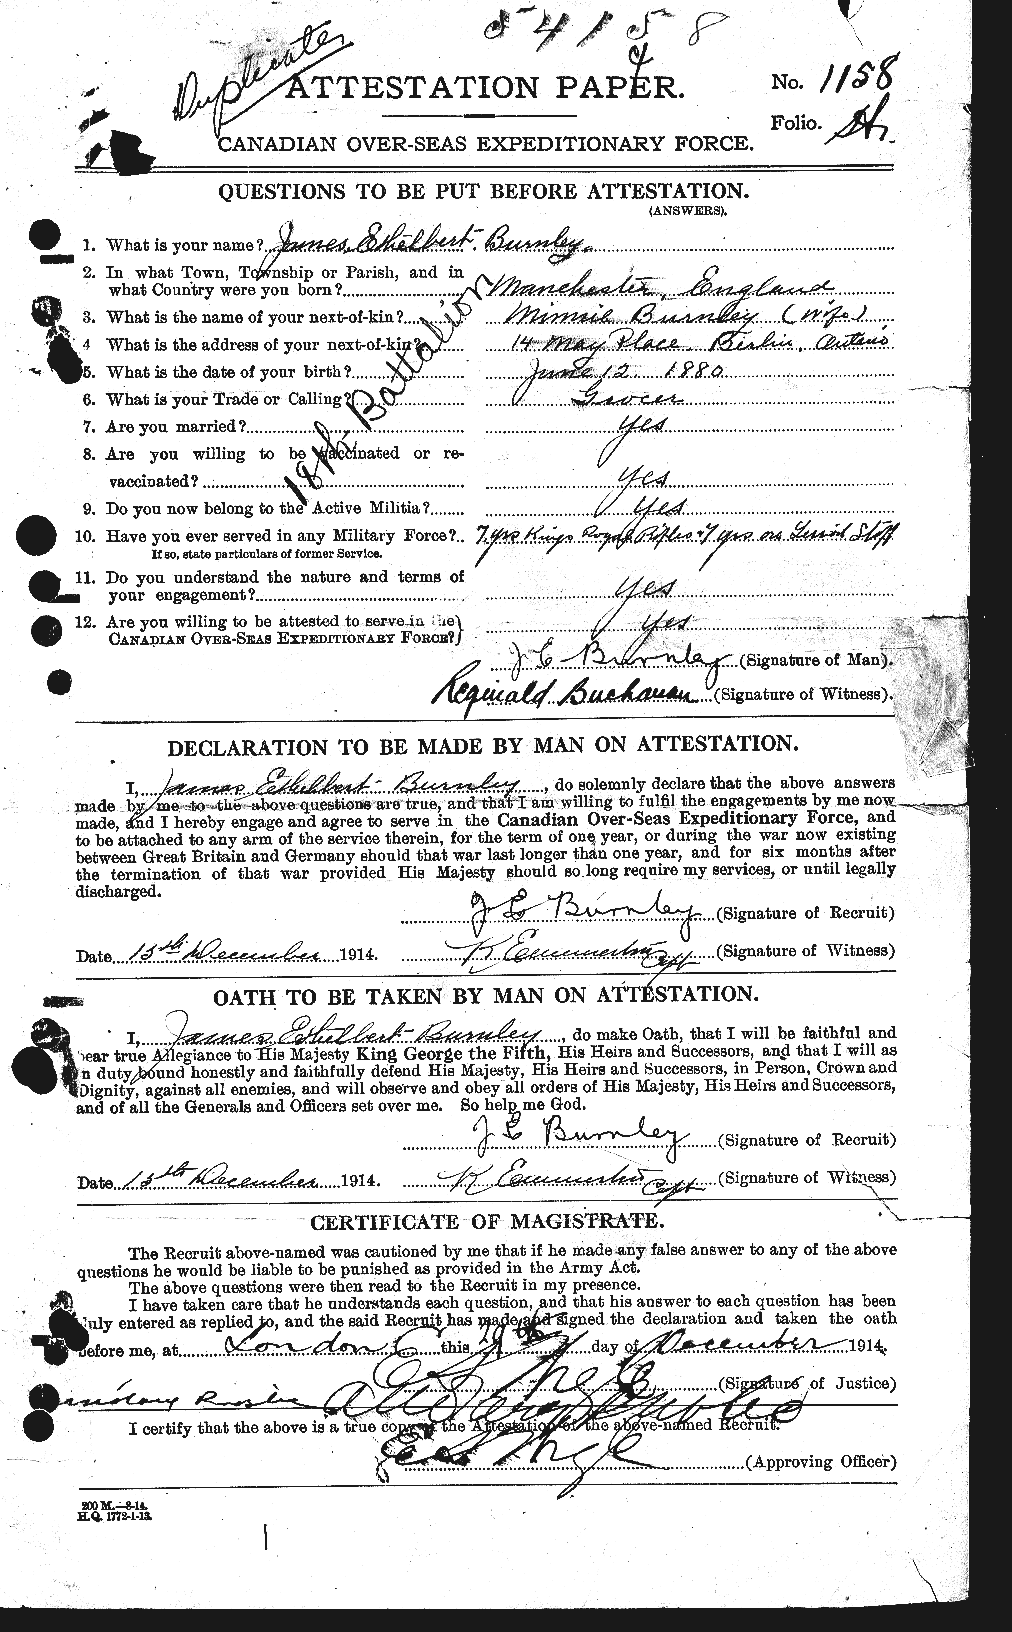 54158
Duplicate
ATTESTATION PAPER.
No. 1158
Folio.
CANADIAN OVER-SEAS EXPEDITIONARY FORCE.
QUESTIONS TO BE PUT BEFORE ATTESTATION.
(ANSWERS).
1. What is your name? James Ethelbert Burnley.
2. In what Town, Township or Parish, and in
what Country were you born? Manchester, England
3. What is the name of your next-of-kin? Minnie Burnley (Wife)
4 What is the address of your next-of-kin? 14 May Place Berlin, Ontario
5. What is the date of your birth? June 12 1880
6. What is your Trade or Calling? Grocer
7. Are you married? Yes
8. Are you willing to be vaccinated or re-
vaccinated? Yes
9. Do you now belong to the Active Militia? Yes
10. Have you ever served in any Military Force? 7 yrs Kings Royal Rifles & 7 yrs on Staff
If so, state particulars of former Service.
11. Do you understand the nature and terms of
your engagement? Yes
12. Are you willing to be attested to serve in the
CANADIAN OVER-SEAS EXPEDITIONARY FORCE? Yes
18th Battalion
J E Burnley (Signature of Man).
Reginald Buchanan (Signature of Witness).
DECLARATION TO BE MADE BY MAN ON ATTESTATION.
I, James Ethelbert Burnley, do solemnly declare that the above answers
made by me to the above questions are true, and that I am willing to fulfil the engagements by me now
made, and I hereby engage and agree to serve in the Canadian Over-Seas Expeditionary Force, and
to be attached to any arm of the service therein, for the term of one year, or during the war now existing
between Great Britain and Germany should that war last longer than one year, and for six months after
the termination of that war provided His Majesty should so long require my services, or until legally
discharged.
J E Burnley (Signature of Recruit)
Date 15th December 1914. K Capt (Signature of Witness)
OATH TO BE TAKEN BY MAN ON ATTESTATION.
I, James Ethelbert Burnley, do make Oath, that I will be faithful and
bear true Allegiance to His Majesty King George the Fifth, His Heirs and Successors, and that I will as
n duty bound honestly and faithfully defend His Majesty, His Heirs and Successors, in Person, Crown and
Dignity, against all enemies, and will observe and obey all orders of His Majesty, His Heirs and Successors,
and of all the Generals and Officers set over me. So help me God.
J E Burnley (Signature of Recruit)
Date 15th December 1914. K Capt (Signature of Witness)
CERTIFICATE OF MAGISTRATE.
The Recruit above-named was cautioned by me that if he made any false answer to any of the above
questions he would be liable to be punished as provided in the Army Act.
The above questions were then read to the Recruit in my presence.
I have taken care that he understands each question, and that his answer to each question has been
duly entered as replied to, and the said Recruit has made and signed the declaration and taken the oath
before me, at London this 29th day of December 1914.
(Signature of Justice)
I certify that the above is a true copy of the Attestation of the above-named Recruit.
(Approving Officer)
200 M.—8-14.
H.Q. 1772-1-13.